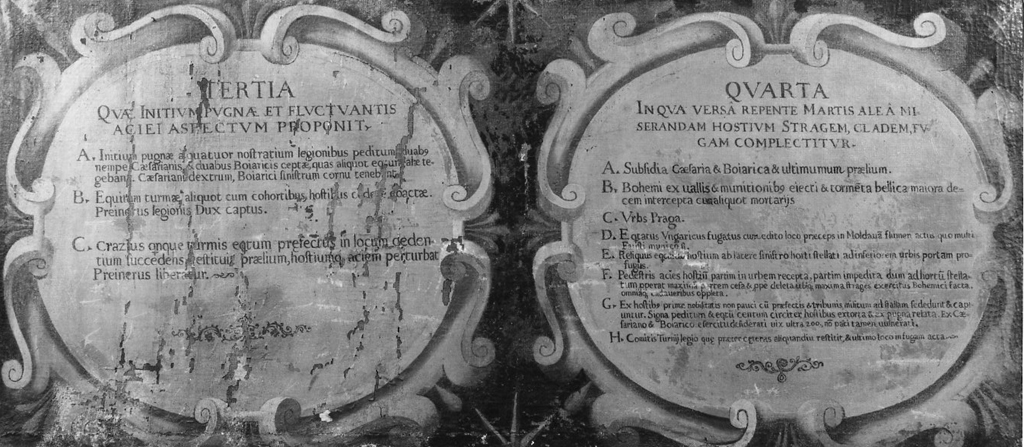 TERTIA
QVÆ INITIVM PVGNÆ ET FLVCTVANTIS
ACIEI ASPECTVM PROPONIT.
A. Initium pugnæ a quatuor nostratium legionibus peditum, duab9
nempe Cæsarianis, & duabus Boiaricis ceptæ, quas aliquot equitũ alæ te-
gebant. Cæsariani dextrum, Boiarici sinistrum cornu tenebant.
B. Equitum turmæ aliquot cum cohortibus, hostibus
Preinerus legionis Dux captus.
C. Crazius cum turmis eqtum prefectus in locum ceden-
tium succedens, restituit prælium, hostiumq aciem perturbat
Preinerus liberatur.
QVARTA
IN QVA VERSÂ REPENTE MARTIS ALEÂ MI-
SERANDAM HOSTIVM STRAGEM, CLADEM, FV-
GAM COMPLECTITVR.
A. Subsidia Cæsaria & Boiarica & ultimumum prælium.
B. Bohemi ex uallis & munitionib9 eiecti & tormẽta bellica maiora de-
cem intercepta cum aliquot mortarijs
C. Vrbs Praga.
D. Eqtatus Vngaricus fugatus cum edito loco preceps in Moldauã flumen actus quo multi
E. Reliquus eqtatus hostium ab latere sinistro horti stellati ad inferiorem urbis portam pro-
fugus.
F. Pedestris acies hostiũ partim in urbem recepta, partim impedita dum ad hortũ stella-
tum operat maxima partem cesa & ppe deleta ubi maxima strages exercitus Bohemici facta,
omniaq cadaueribus oppleta.
G. Ex hostibus prime nobilitatis non pauci cũ præfectis & tribunis militum ad stellam se dedunt & capi-
untur. Signa peditum & eqtũ centum circiter hostibus extorta & ex pugna relata. Ex Cæ-
sariano & Boiarico exercitu desiderati uix ultra 200, nõ pauci tamen uulnerati.
H. Comitis Turnij legio quæ præ ceteris aliquandiu restitit, & ultimo loco in fugam acta.